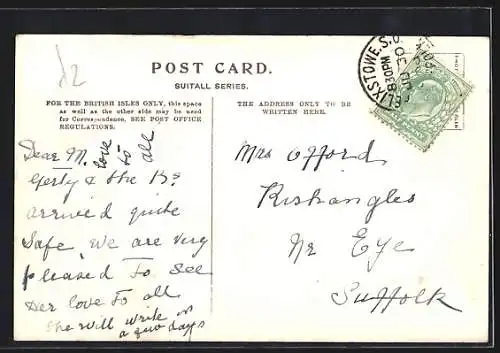 POST CARD.
SUITALL SERIES.
FOR THE BRITISH ISLES ONLY, this space
as well as the address side may be used
for Correspondence, SEE POST OFFICE
REGULATIONS.
THE ADDRESS ONLY TO BE
WRITTEN HERE.
Dear M. love to all
Gerty & the
arrived quite
safe, we are very
pleased To see
Her love To all
she will write in
a few days
Mrs Offord
Rishangles
Nr Eye
Suffolk